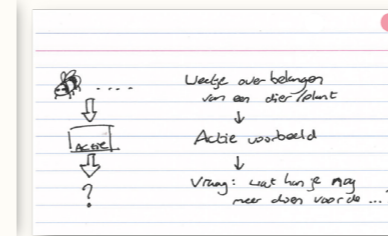 ....
Weetje over belangen
van een dier/plant
↓
Actie
Actie voorbeeld
↓
?
Vraag: wat kan je nog
meer doen voor de ...